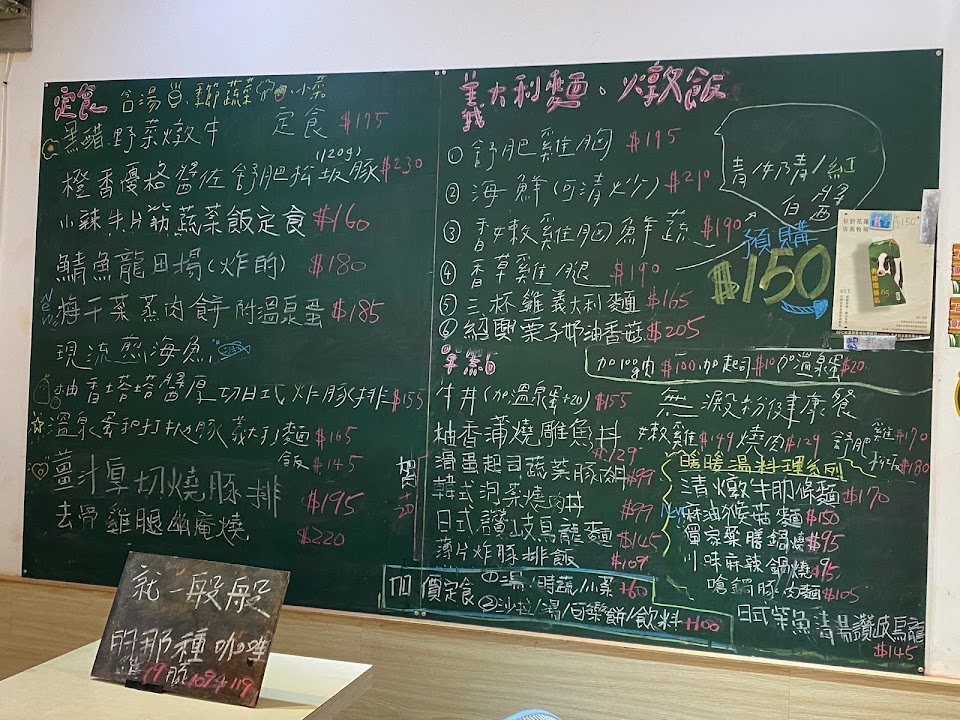 定食 含湯 季節蔬菜 小菜
黑醋野菜燉牛 定食 $175
橙香優格醬佐舒肥松坂豚 (120g) $230
小辣牛片筋蔬菜飯定食 $160
鯖魚龍田揚(炸的) $180
New 梅干菜蒸肉餅附溫泉蛋 $185
現流煎海魚
柚香塔塔醬厚切日式炸豚排 $155
溫泉蛋 豚義大利麵 $165
飯 $145
薑汁厚切燒豚排 $195
去骨雞腿幽庵燒 $220
義大利麵、燉飯
① 舒肥雞胸 $195
② 海鮮(可清炒) $210
③ 香嫩雞胸鮮蔬 $190
④ 香草雞腿 $190
⑤ 三杯雞義大利麵 $165
⑥ 紹興栗子奶油香菇 $205
青 紅
白醬
預購
$150
$150
加100g肉 $100 加起司 $10 加溫泉蛋 $20
單點
牛丼(加溫泉蛋+20) $155
柚香蒲燒雕魚丼 $129
滑蛋起司蔬菜豚肉丼 $99
韓式泡菜燒肉丼 $99
日式讚岐烏龍麵 $145
薄片炸豚排飯 $109
+20
無澱粉健康餐
嫩雞 $149 燒肉 $129 舒肥 雞 $170
$180
暖暖湯料理系列
清燉牛肋條麵 $170
New 麻油猴菇麵 $150
獨家藥膳鍋燒 $95
川味麻辣鍋燒 $95
嗆鍋豚肉麵 $105
日式柴魚清湯讚岐烏龍
$145
加價定食 ①湯/時蔬/小菜 +60
②沙拉/湯/可樂餅/飲料 +100
就一般般
的那種咖哩
豚109牛119